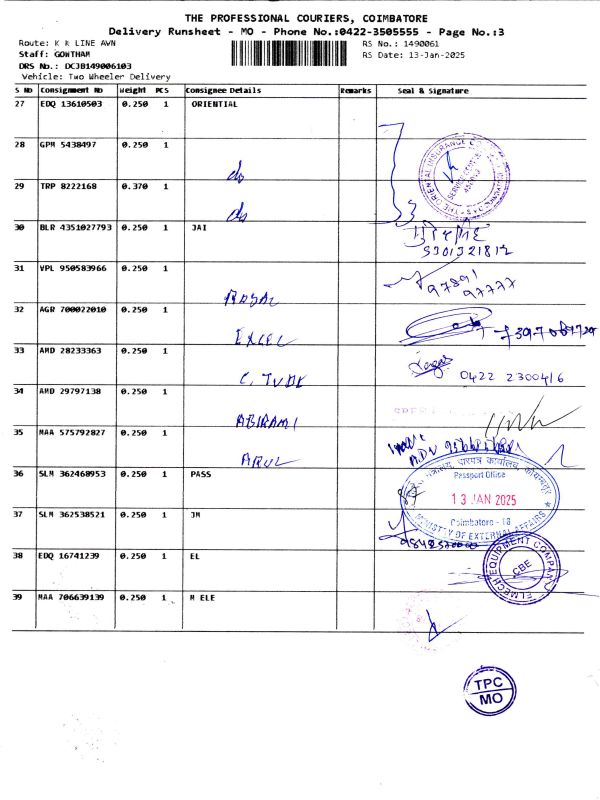 THE PROFESSIONAL COURIERS, COIMBATORE
Delivery Runsheet - MO - Phone No.:0422-3505555 - Page No.:3
Route: K R LINE AWN
Staff: GOWTHAM
DRS No.: DCJB149006103
Vehicle: Two Wheeler Delivery
RS No.: 1490061
RS Date: 13-Jan-2025
S No Consignment No Weight PCS Consignee Details Remarks Seal & Signature
27 EDQ 13610503 0.250 1 ORIENTIAL
28 GPM 5438497 0.250 1 do
29 TRP 8222168 0.370 1 do
THE ORIENTAL INSURANCE CO
SERVICE CENTRE
30 BLR 4351027793 0.250 1 JAI
31 VPL 950583966 0.250 1 ROYAL
97891
97777
32 AGR 700022010 0.250 1 EXCEL
33 AMD 28233363 0.250 1
0422 2300416
34 AMD 29797138 0.250 1 ABIRAMI
35 MAA 575792827 0.250 1 ARUL
36 SLM 362468953 0.250 1 PASS
पारपत्र कार्यालय, कोयम्बतूर
Passport Office
13 JAN 2025
Coimbatore - 18
MINISTRY OF EXTERNAL AFFAIRS
37 SLM 362538521 0.250 1 JM
38 EDQ 16741239 0.250 1 EL
ELMECH EQUIPMENT COMPANY
CBE
39 MAA 706639139 0.250 1 M ELE
TPC
MO